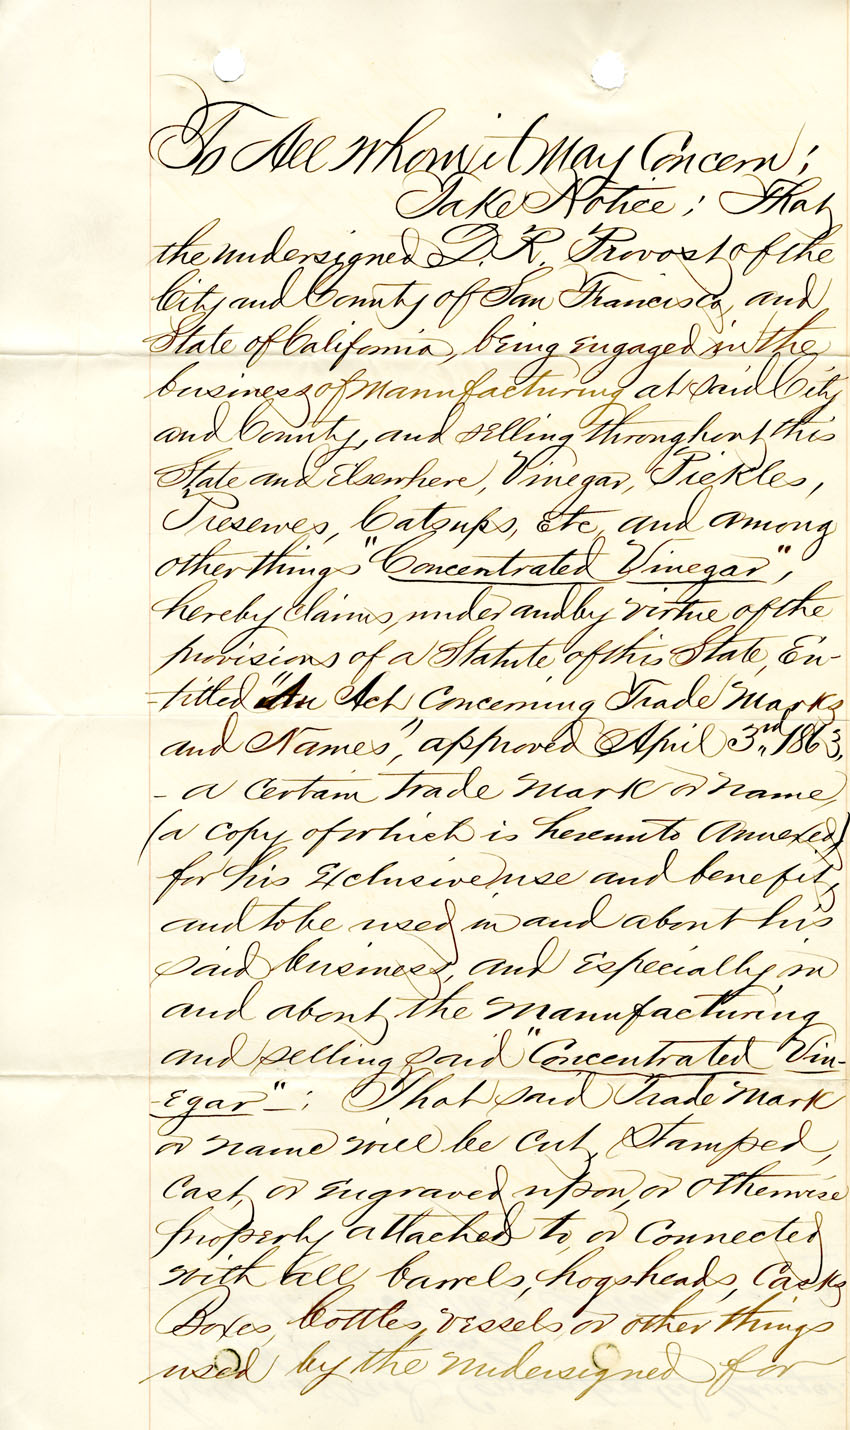 To All whom it May Concern;
Take Notice; That
the undersigned D. R. Provost of the
City and County of San Francisco, and
State of California, being engaged in the
business of manufacturing at said City
and County, and selling throughout this
State and Elsewhere, Vinegar, Pickles,
Preserves, Catsups, Etc, and among
other things "Concentrated Vinegar",
hereby claims, under and by virtue of the
provisions of a Statute of this State, En-
-titled "An Act Concerning Trade Marks
and Names", approved April 3rd, 1863,
- a certain trade mark or name,
(a copy of which is hereunto annexed)
for his Exclusive use and benefit,
and to be used in and about his
said business, and Especially in
and about the manufacturing
and selling said "Concentrated Vin-
-Egar"-; That said Trade Mark
or name will be cut, Stamped,
Cast, or Engraved upon, or otherwise
properly attached to, or Connected
with all barrels, hogsheads, Casks
Boxes, bottles, vessels or other things
used by the undersigned for